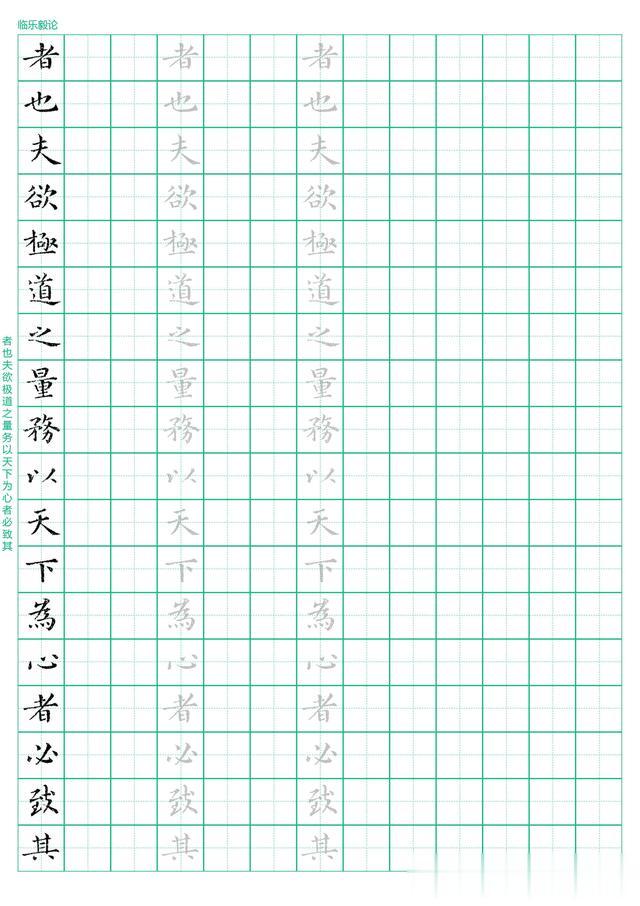 临乐毅论
者也夫欲极道之量务以天下为心者必致其
者也夫欲極道之量務以天下為心者必致其
者也夫欲極道之量務以天下為心者必致其
者也夫欲極道之量務以天下為心者必致其